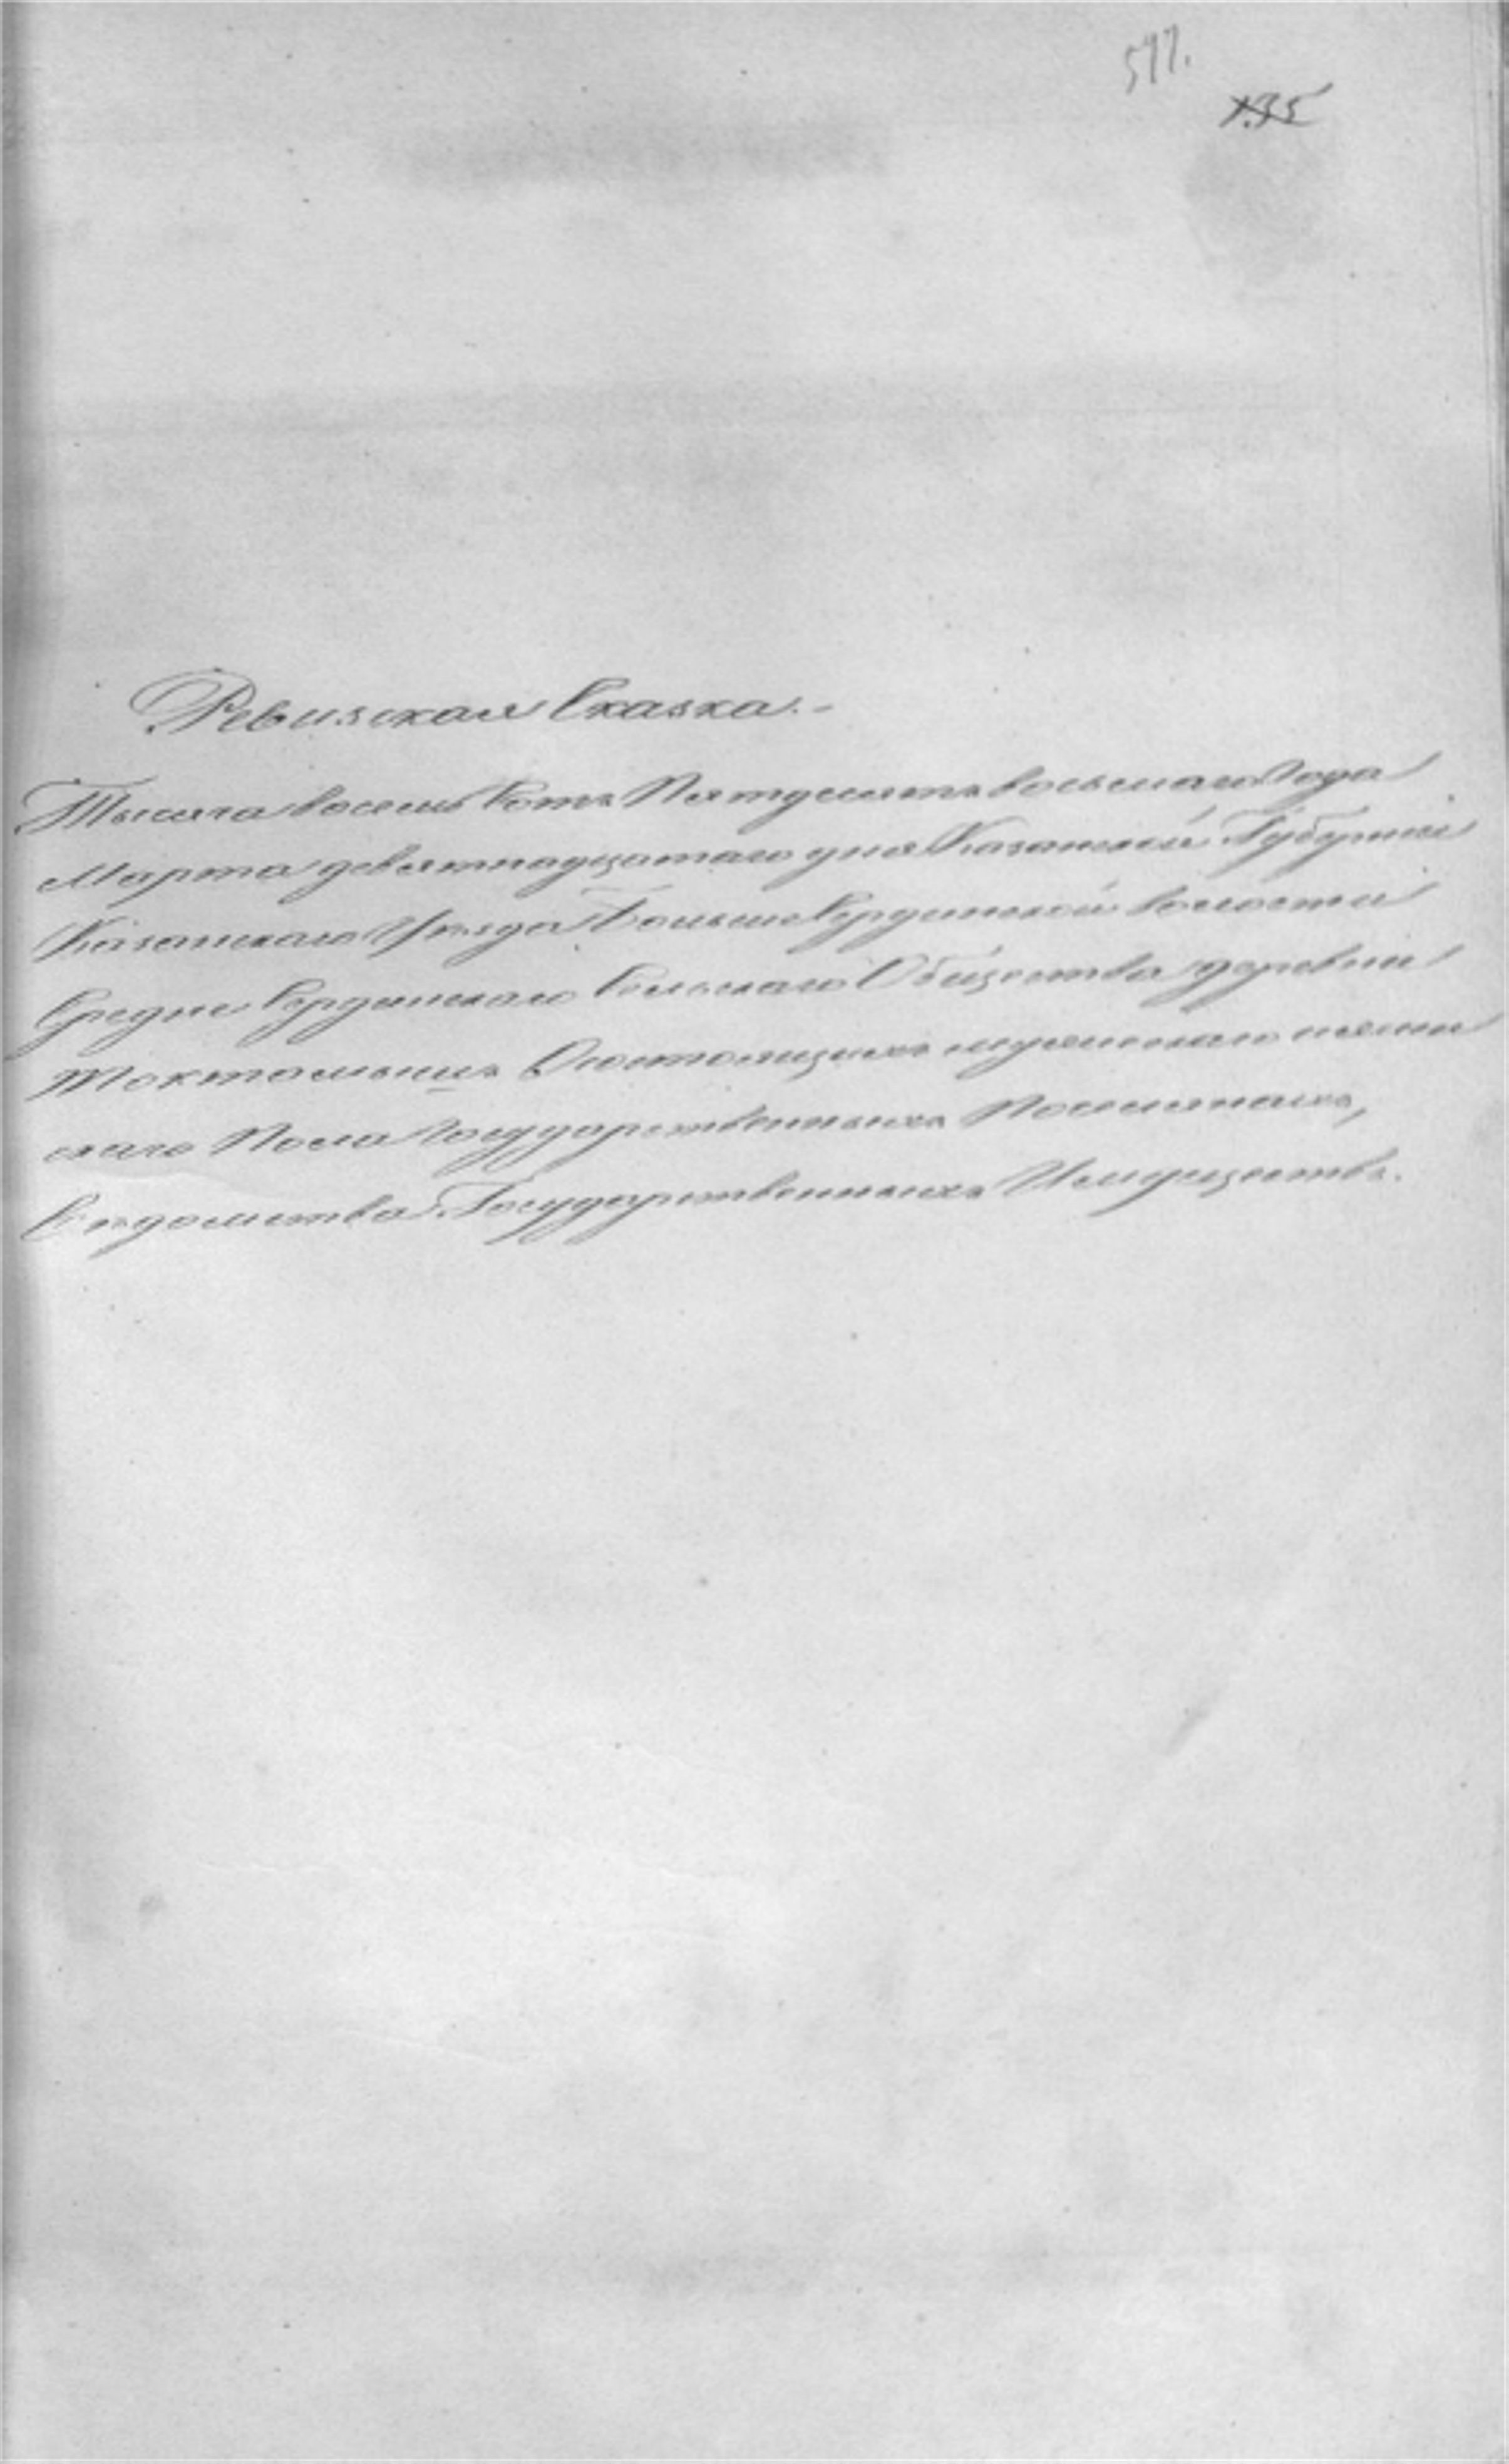 135
Ревизская Сказка.-
Тысяча восемь сотъ Пятдесятъ восьмаго Года
Марта девятнадцатаго дня Казанской Губерніи
Казанскаго Уѣзда Больше Сердинской волости
Средне Сердинскаго Сельскаго Общества деревни
состоящихъ мужескаго и женс
скаго Пола Государственныхъ Поселянахъ,
Вѣдомства Государственныхъ Имуществъ.